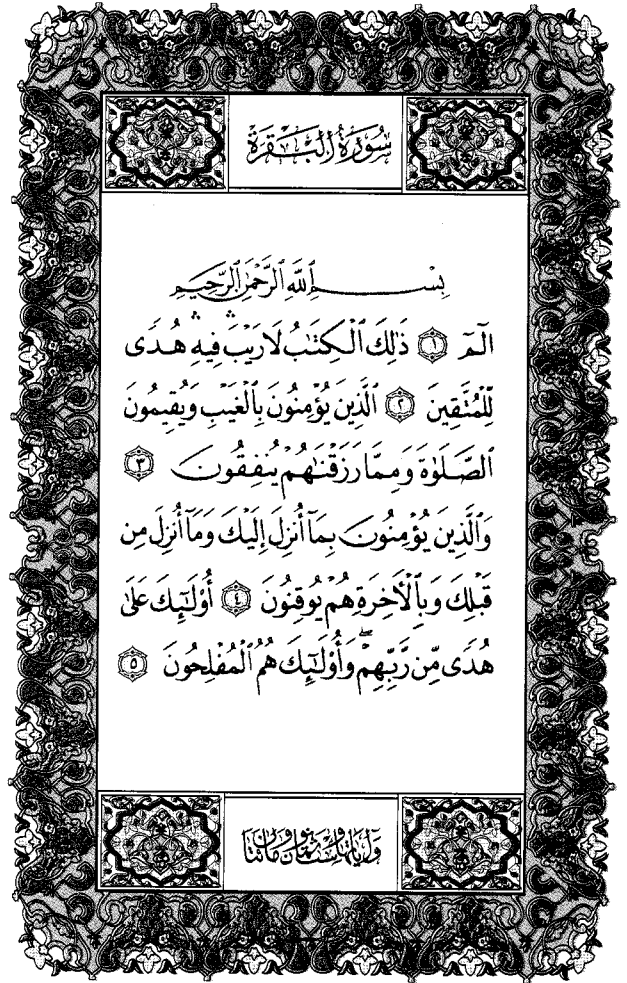 سُورَةُ ٱلْبَقَرَةِ
بِسْمِ ٱللَّهِ ٱلرَّحْمَٰنِ ٱلرَّحِيمِ
الٓمٓ ١ ذَٰلِكَ ٱلْكِتَٰبُ لَا رَيْبَ ۛ فِيهِ ۛ هُدًى
لِّلْمُتَّقِينَ ٢ ٱلَّذِينَ يُؤْمِنُونَ بِٱلْغَيْبِ وَيُقِيمُونَ
ٱلصَّلَوٰةَ وَمِمَّا رَزَقْنَٰهُمْ يُنفِقُونَ ٣
وَٱلَّذِينَ يُؤْمِنُونَ بِمَآ أُنزِلَ إِلَيْكَ وَمَآ أُنزِلَ مِن
قَبْلِكَ وَبِٱلْأَخِرَةِ هُمْ يُوقِنُونَ ٤ أُو۟لَٰٓئِكَ عَلَىٰ
هُدًى مِّن رَّبِّهِمْ ۖ وَأُو۟لَٰٓئِكَ هُمُ ٱلْمُفْلِحُونَ ٥
وآياتها ست وثمانون ومائتان